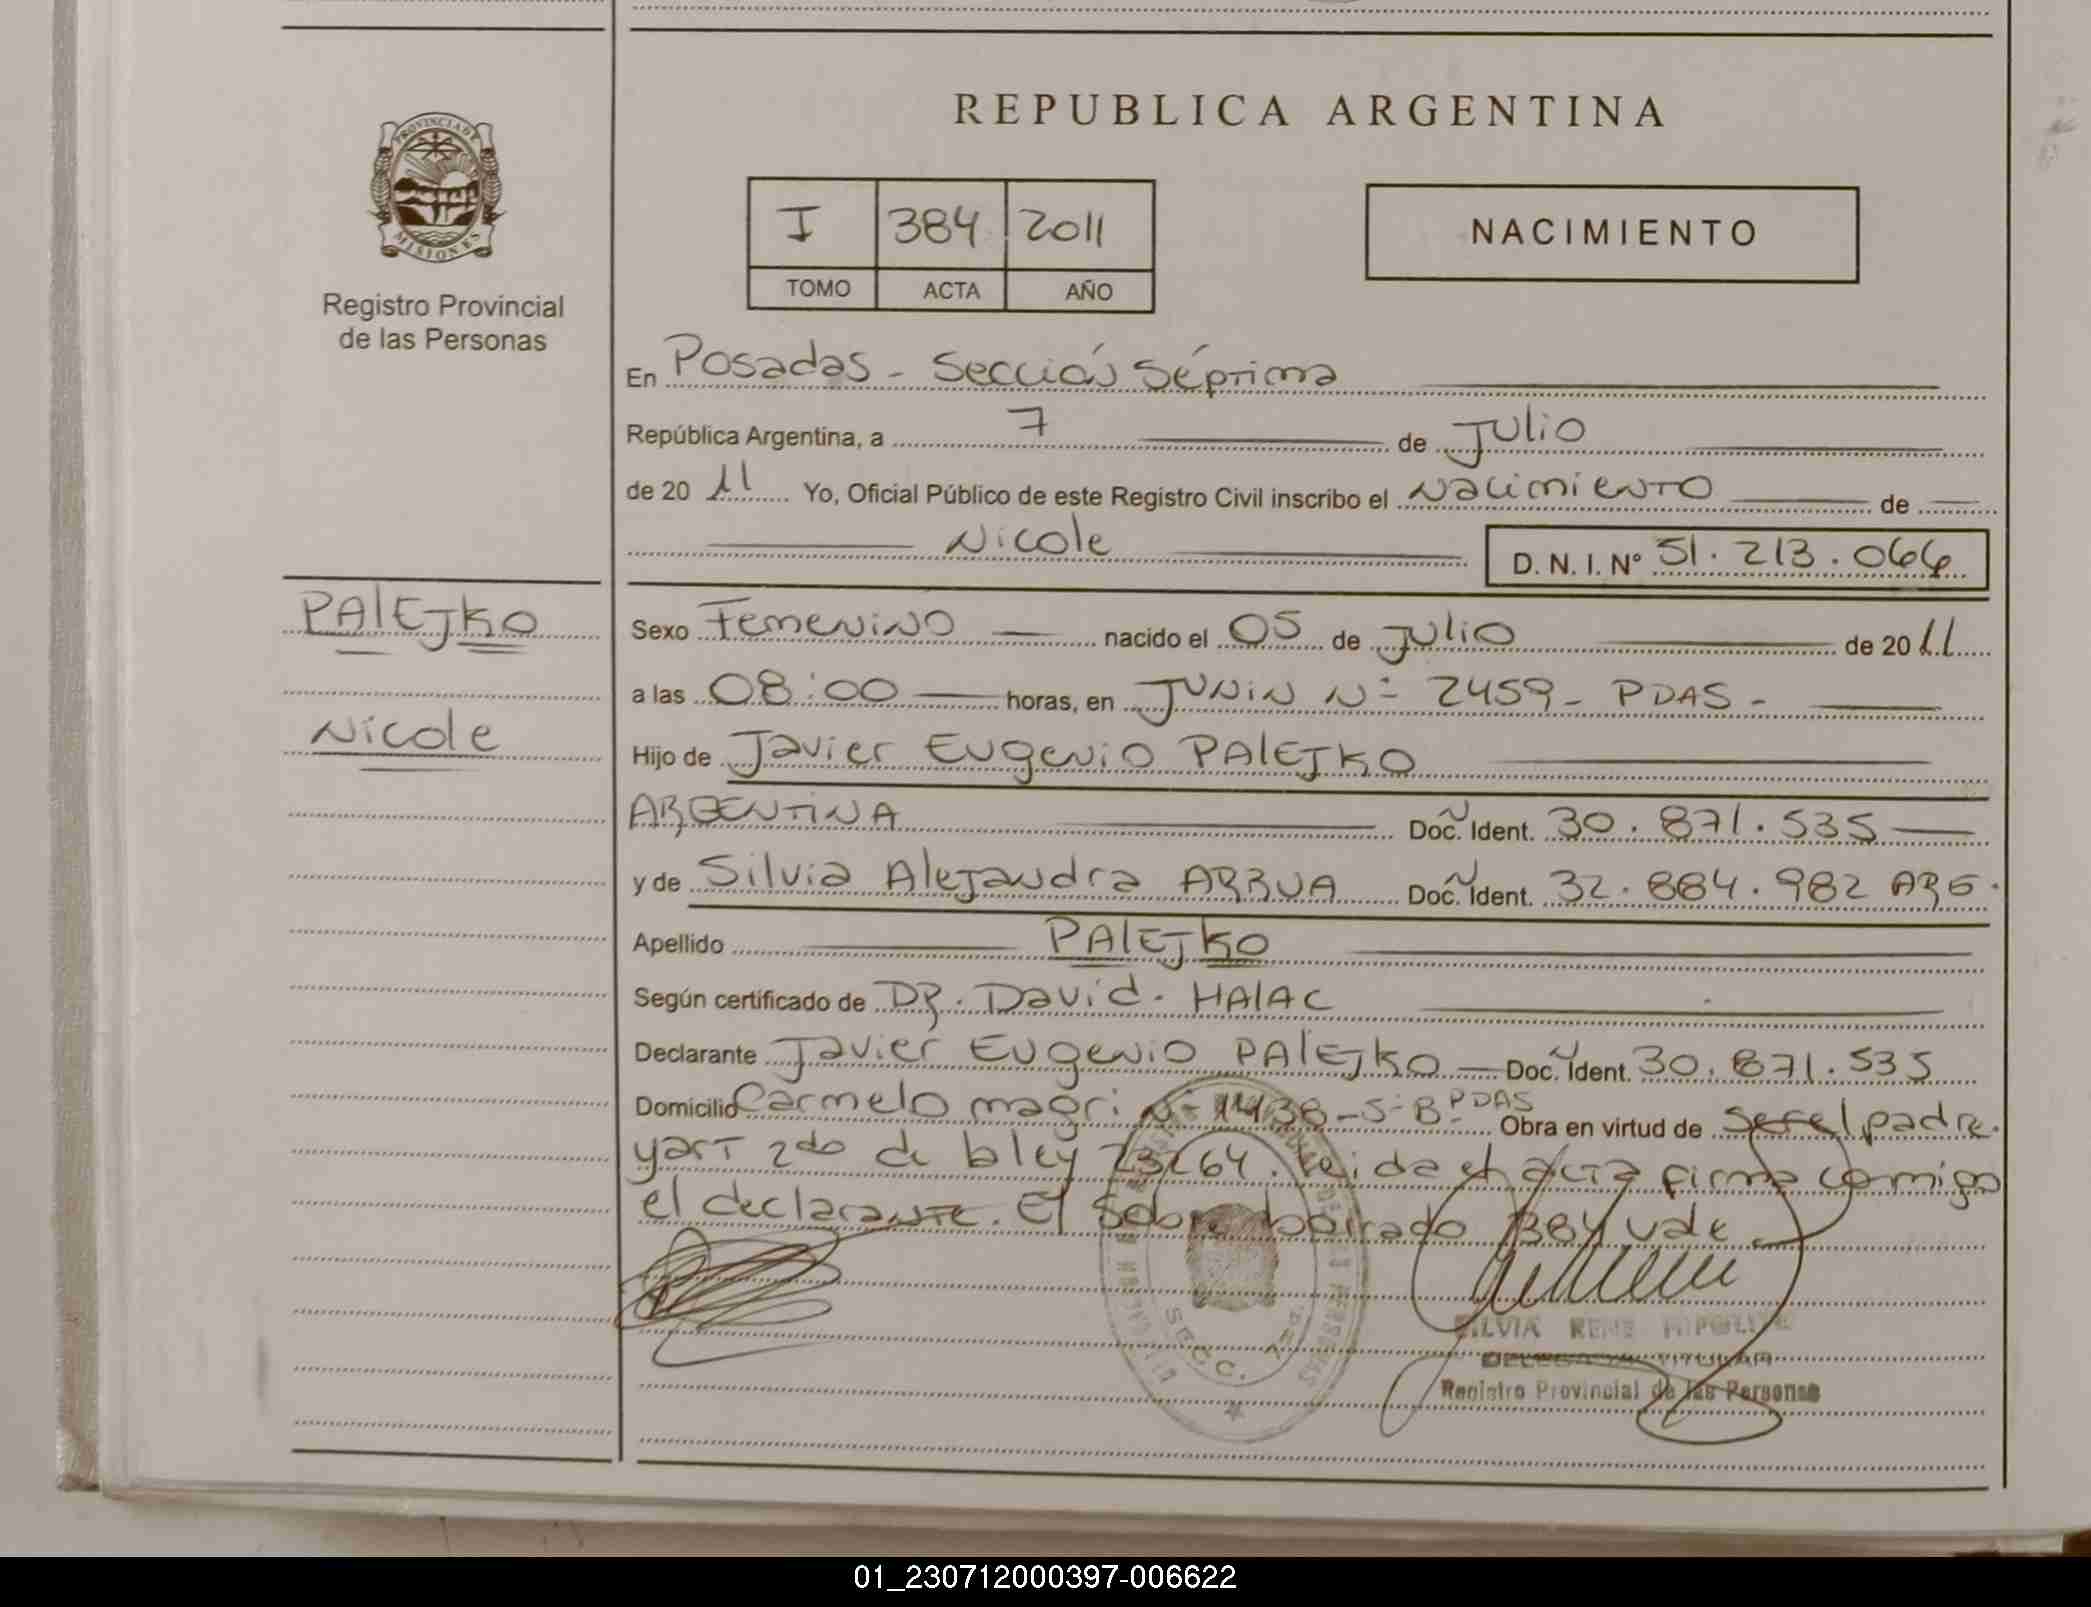 REPUBLICA ARGENTINA
PROVINCIA DE
MISIONES
Registro Provincial
de las Personas
I 384 2011
TOMO ACTA AÑO
NACIMIENTO
En Posadas - Sección Séptima
República Argentina, a 7 de Julio
de 20 11 Yo, Oficial Público de este Registro Civil inscribo el Nacimiento de
Nicole D. N. I. Nº 51.213.064
PALEJKO
Nicole
Sexo Femenino nacido el 05 de Julio de 20 11
a las 08:00 horas, en JUNIN Nº 2459 - PDAS -
Hijo de Javier Eugenio PALEJKO
ARGENTINA Doc. Ident. 30.871.535
y de Silvia Alejandra ARBUA Doc. Ident. 32.884.982 ARG.
Apellido PALEJKO
Según certificado de DR. David. HALAC
Declarante Javier Eugenio PALEJKO Doc. Ident. 30.871.535
Domicilio Carmelo magri Nº 1438 - Sº Bº PDAS Obra en virtud de ser el padre
y art 2do de la ley 23264. Leida el acta firma conmigo
el declarante. El Sobre borrado 384 vale
SECC. 7
SILVIA RENE HIPOLITO
DELEGADA TITULAR
Registro Provincial de las Personas
01_230712000397-006622